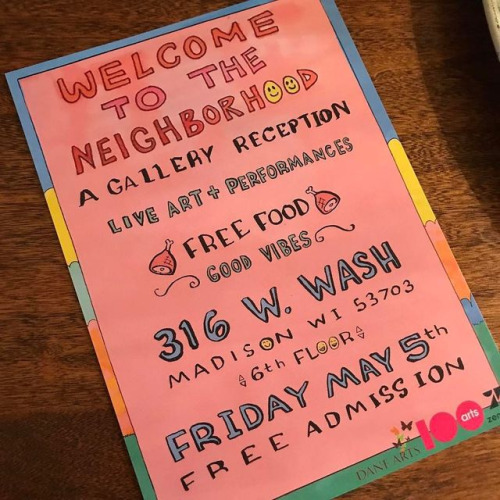 WELCOME
TO THE
NEIGHBORHOOD
A GALLERY RECEPTION
LIVE ART + PERFORMANCES
FREE FOOD
GOOD VIBES
316 W. WASH
MADISON WI 53703
6th FLOOR
FRIDAY MAY 5th
FREE ADMISSION
DANE ARTS
100
arts